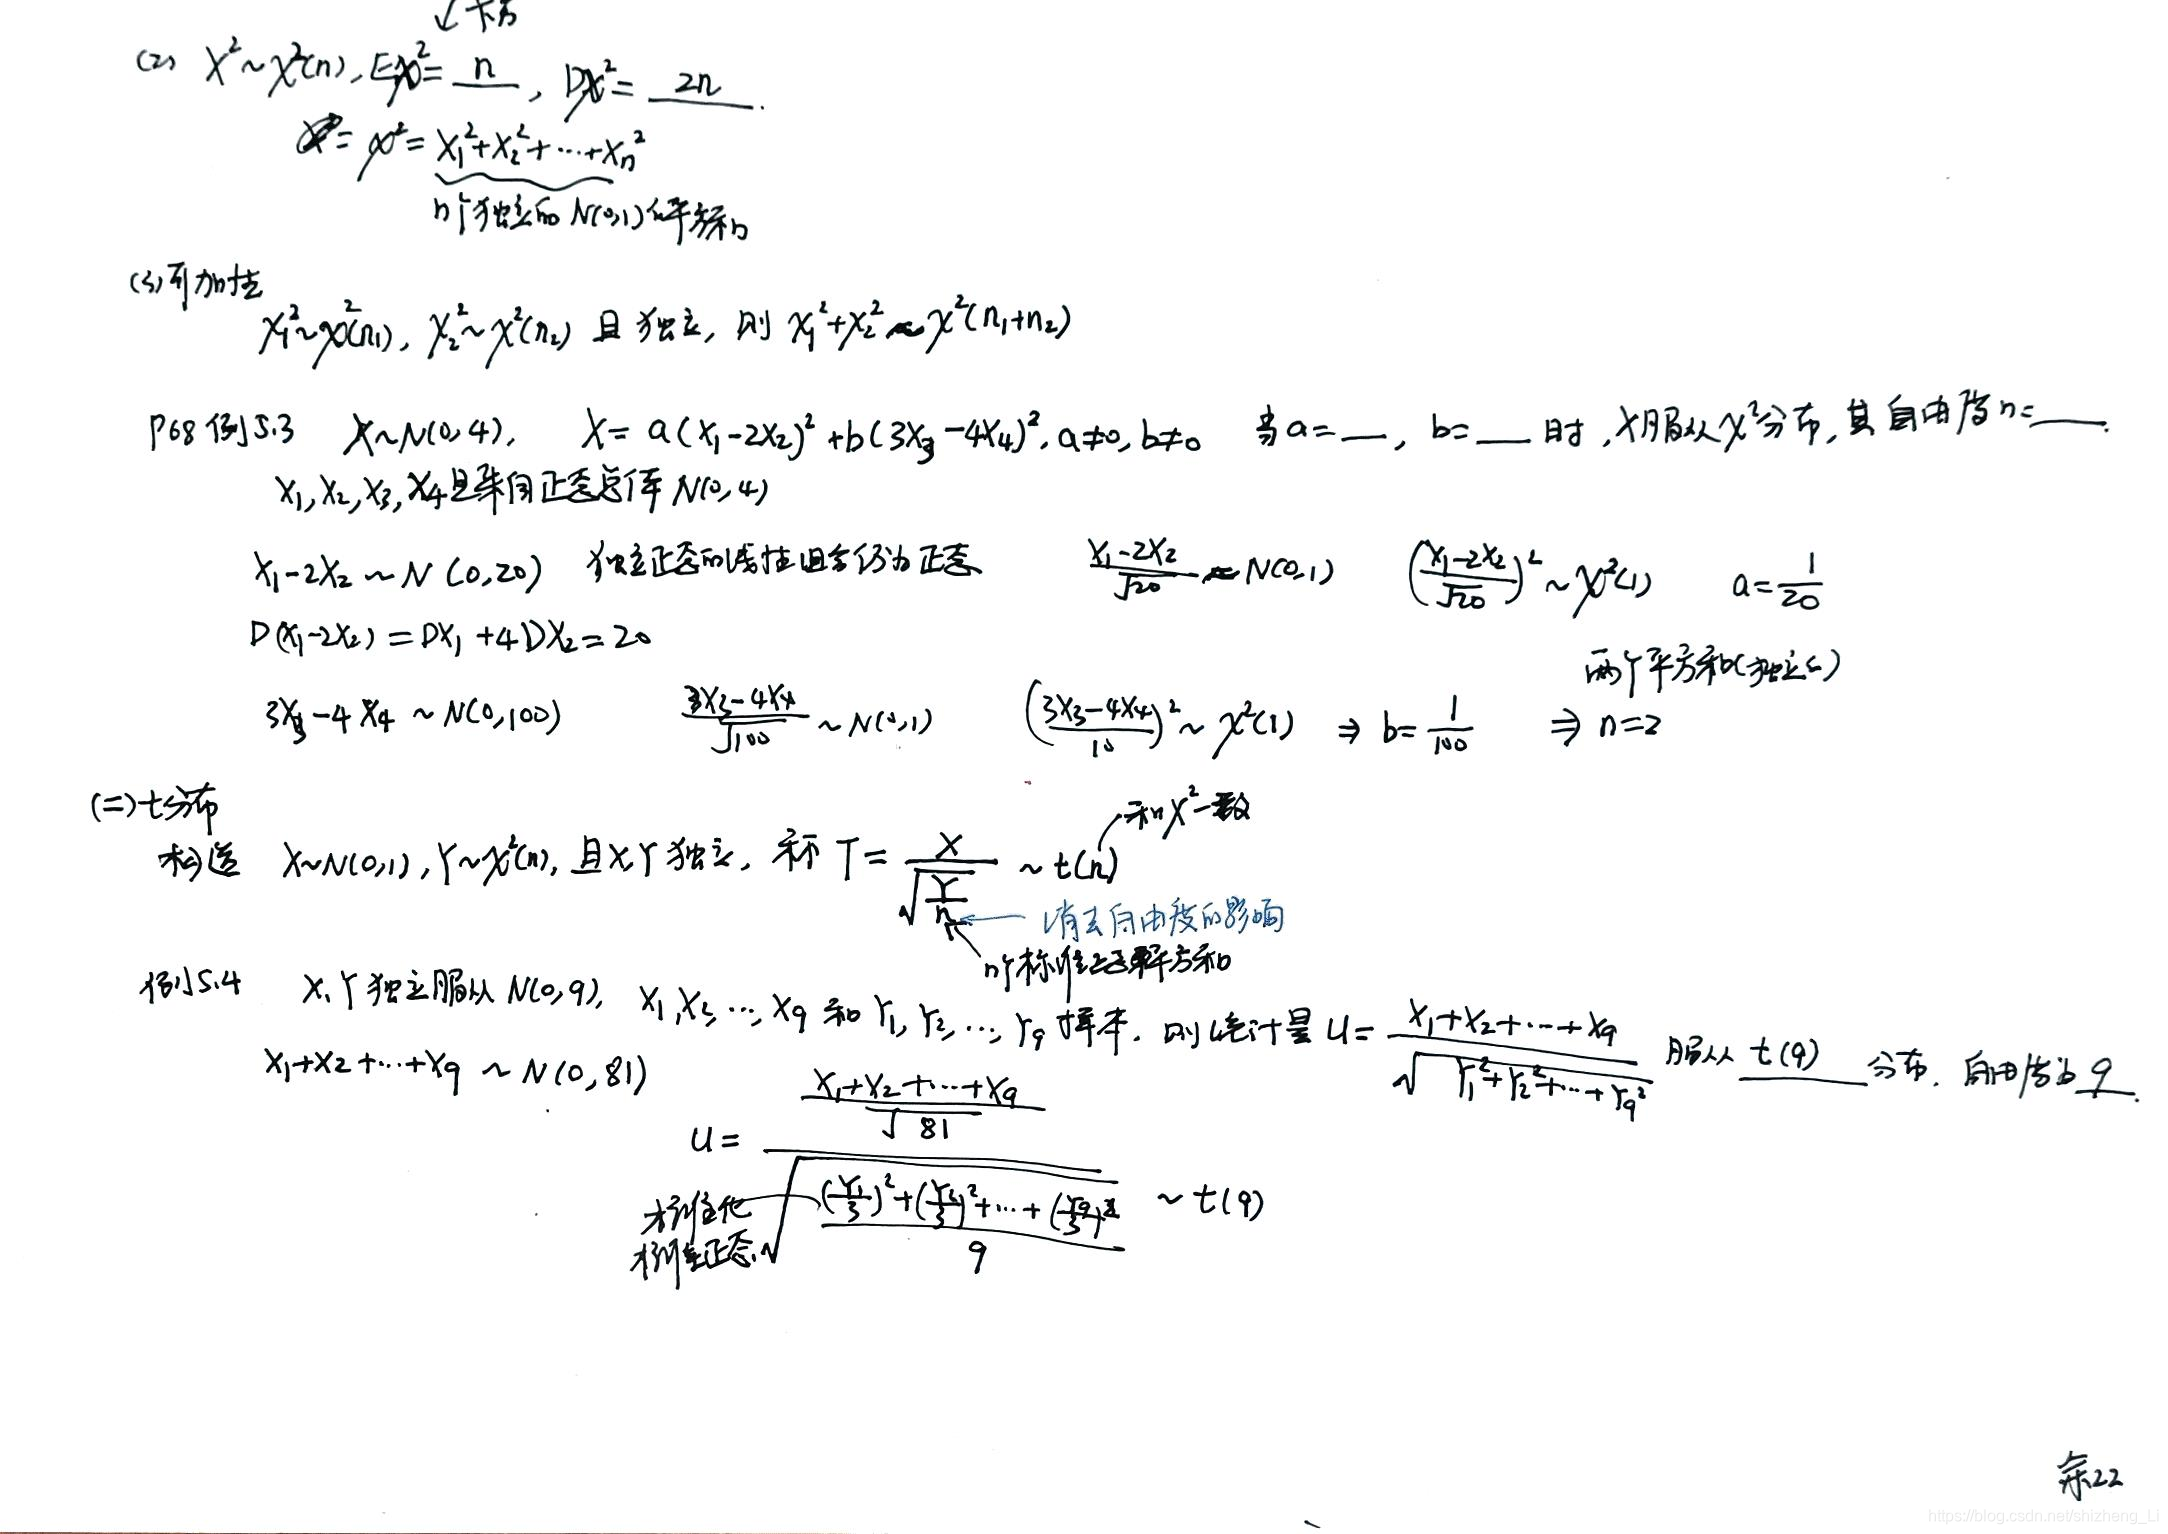 ↙卡方
(2) X²~χ²(n), Eχ²= n , Dχ²= 2n .
= χ²= X₁²+X₂²+…+Xₙ²
n个独立的N(0,1)的平方和
(3)可加性
χ₁²~χ²(n₁), χ₂²~χ²(n₂) 且独立, 则 χ₁²+χ₂²~χ²(n₁+n₂)
P68 例5.3 X~N(0,4), X=a(X₁-2X₂)²+b(3X₃-4X₄)², a≠0, b≠0 当a=__, b=__时, X服从χ²分布, 其自由度n=__.
X₁, X₂, X₃, X₄是来自正态总体N(0,4)
X₁-2X₂~N(0,20) 独立正态的线性组合仍为正态 (X₁-2X₂)/√20~N(0,1) ((X₁-2X₂)/√20)²~χ²(1) a=1/20
D(X₁-2X₂)=DX₁+4DX₂=20
两个平方和(独立的)
3X₃-4X₄~N(0,100) (3X₃-4X₄)/√100~N(0,1) ((3X₃-4X₄)/10)²~χ²(1) ⇒ b=1/100 ⇒ n=2
(二)t分布
和χ²一致
构造 X~N(0,1), Y~χ²(n), 且X,Y独立, 称 T=X/√(Y/n) ~ t(n)
消去自由度的影响
n个标准正态平方和
例5.4 X,Y独立服从N(0,9), X₁,X₂,…,X₉和Y₁,Y₂,…,Y₉样本. 则统计量U=(X₁+X₂+…+X₉)/√(Y₁²+Y₂²+…+Y₉²) 服从 t(9) 分布. 自由度为 9 .
X₁+X₂+…+X₉~N(0,81)
U=((X₁+X₂+…+X₉)/√81)/√(((Y₁/3)²+(Y₂/3)²+…+(Y₉/3)²)/9) ~ t(9)
标准化
标准正态
22
https://blog.csdn.net/shizheng_Li